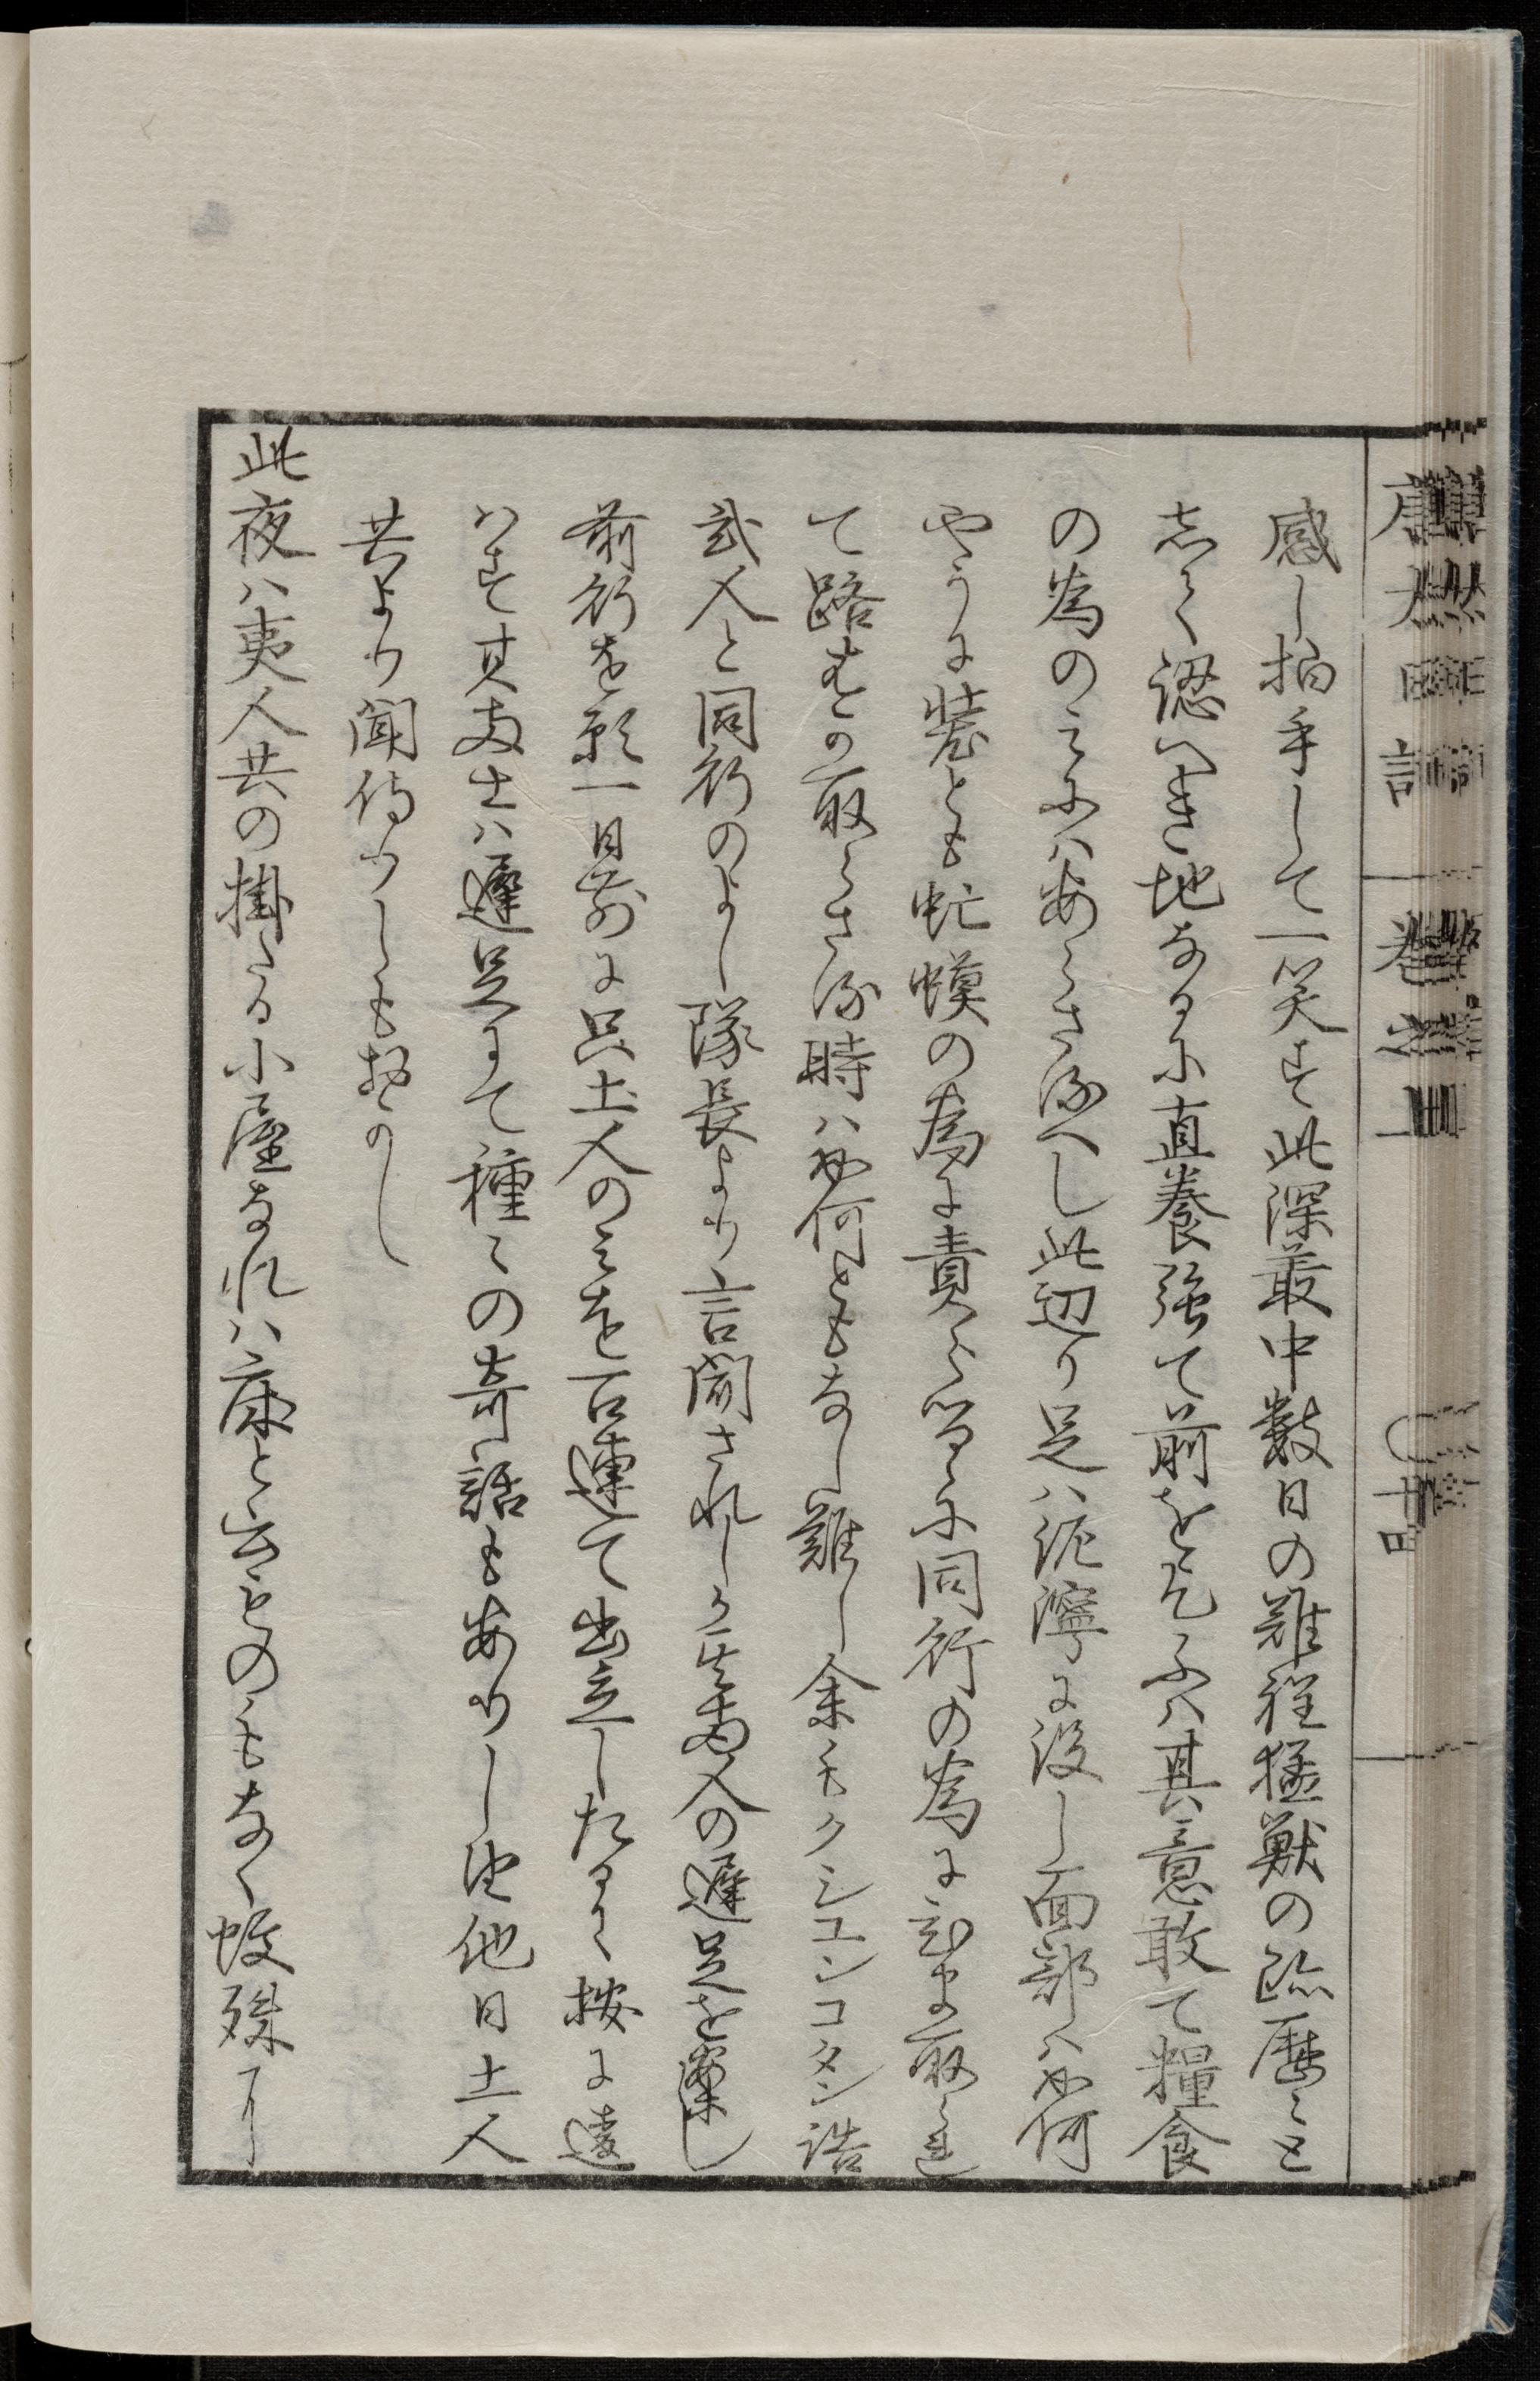 感し拍手して一笑す此深叢中数日の難程猛獣の跡歴〻と
志て認へき地なるに直養強て前を乞ふハ其意敢て糧食
の為のミにハあらさるへし此辺り足ハ泥濘に没し面部ハ如何
やうに装とも虻蟆の為に責らるゝに同行の為に取られ
て路すの取らさる時ハ如何ともなし難し余モクシユンコタン詰
弐人と同行のよし隊長より言聞されしか其両人の遅足を案し
前行を願一日前に只土人のミを召連て出立したるよし按に違
ハす其両士ハ遅足にて種〻の奇話もありし由他日土人
共より聞侍りしもおかし
此夜ハ夷人共の掛たる小屋なれハ床と云ものもなく蚊殊ニ